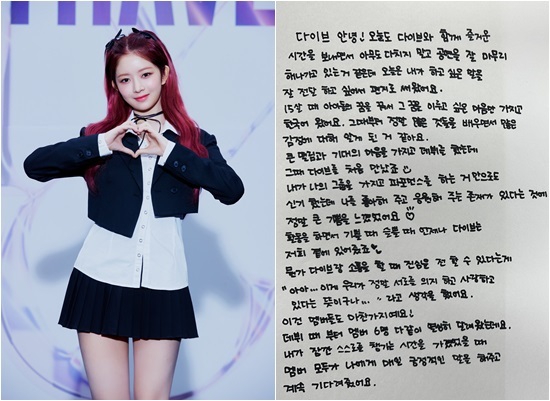 I HAVE
다이브 안녕! 오늘도 다이브와 함께 즐거운
시간을 보내면서 아무도 다치지 말고 공연을 잘 마무리
해나가고 있는거 같은데 오늘은 내가 하고 싶은 말을
잘 전달 하고 싶어서 편지로 써왔어요.
15살 때 아이돌의 꿈을 꿔서 그 꿈을 이루고 싶은 마음만 가지고
한국에 왔어요. 그때부터 정말 많은 것들을 배우면서 많은
감정에 대해 알게 된 거 같아요.
큰 떨림과 기대의 마음을 가지고 데뷔를 했는데
그때 다이브를 처음 만났죠
내가 나의 그룹을 가지고 퍼포먼스를 하는 거 만으로도
신기 했는데 나를 좋아해 주고 응원해 주는 존재가 있다는 것에
정말 큰 기쁨을 느꼈었어요
활동을 하면서 기쁠 때 슬플 때 언제나 다이브는
저희 곁에 있어줬죠
뭔가 다이브랑 소통을 할 때 진심을 전 할 수 있다는게
"아아... 이게 우리가 정말 서로를 의지 하고 사랑하고
있다는 뜻이구나..." 라고 생각을 했어요.
이건 멤버들도 마찬가지예요!
데뷔 때 부터 멤버 6명 다같이 열심히 달려왔는데요.
내가 잠깐 스스로를 챙기는 시간을 가졌었을 때
멤버 모두가 나에게 매일 긍정적인 말을 해주고
계속 기다려줬어요.